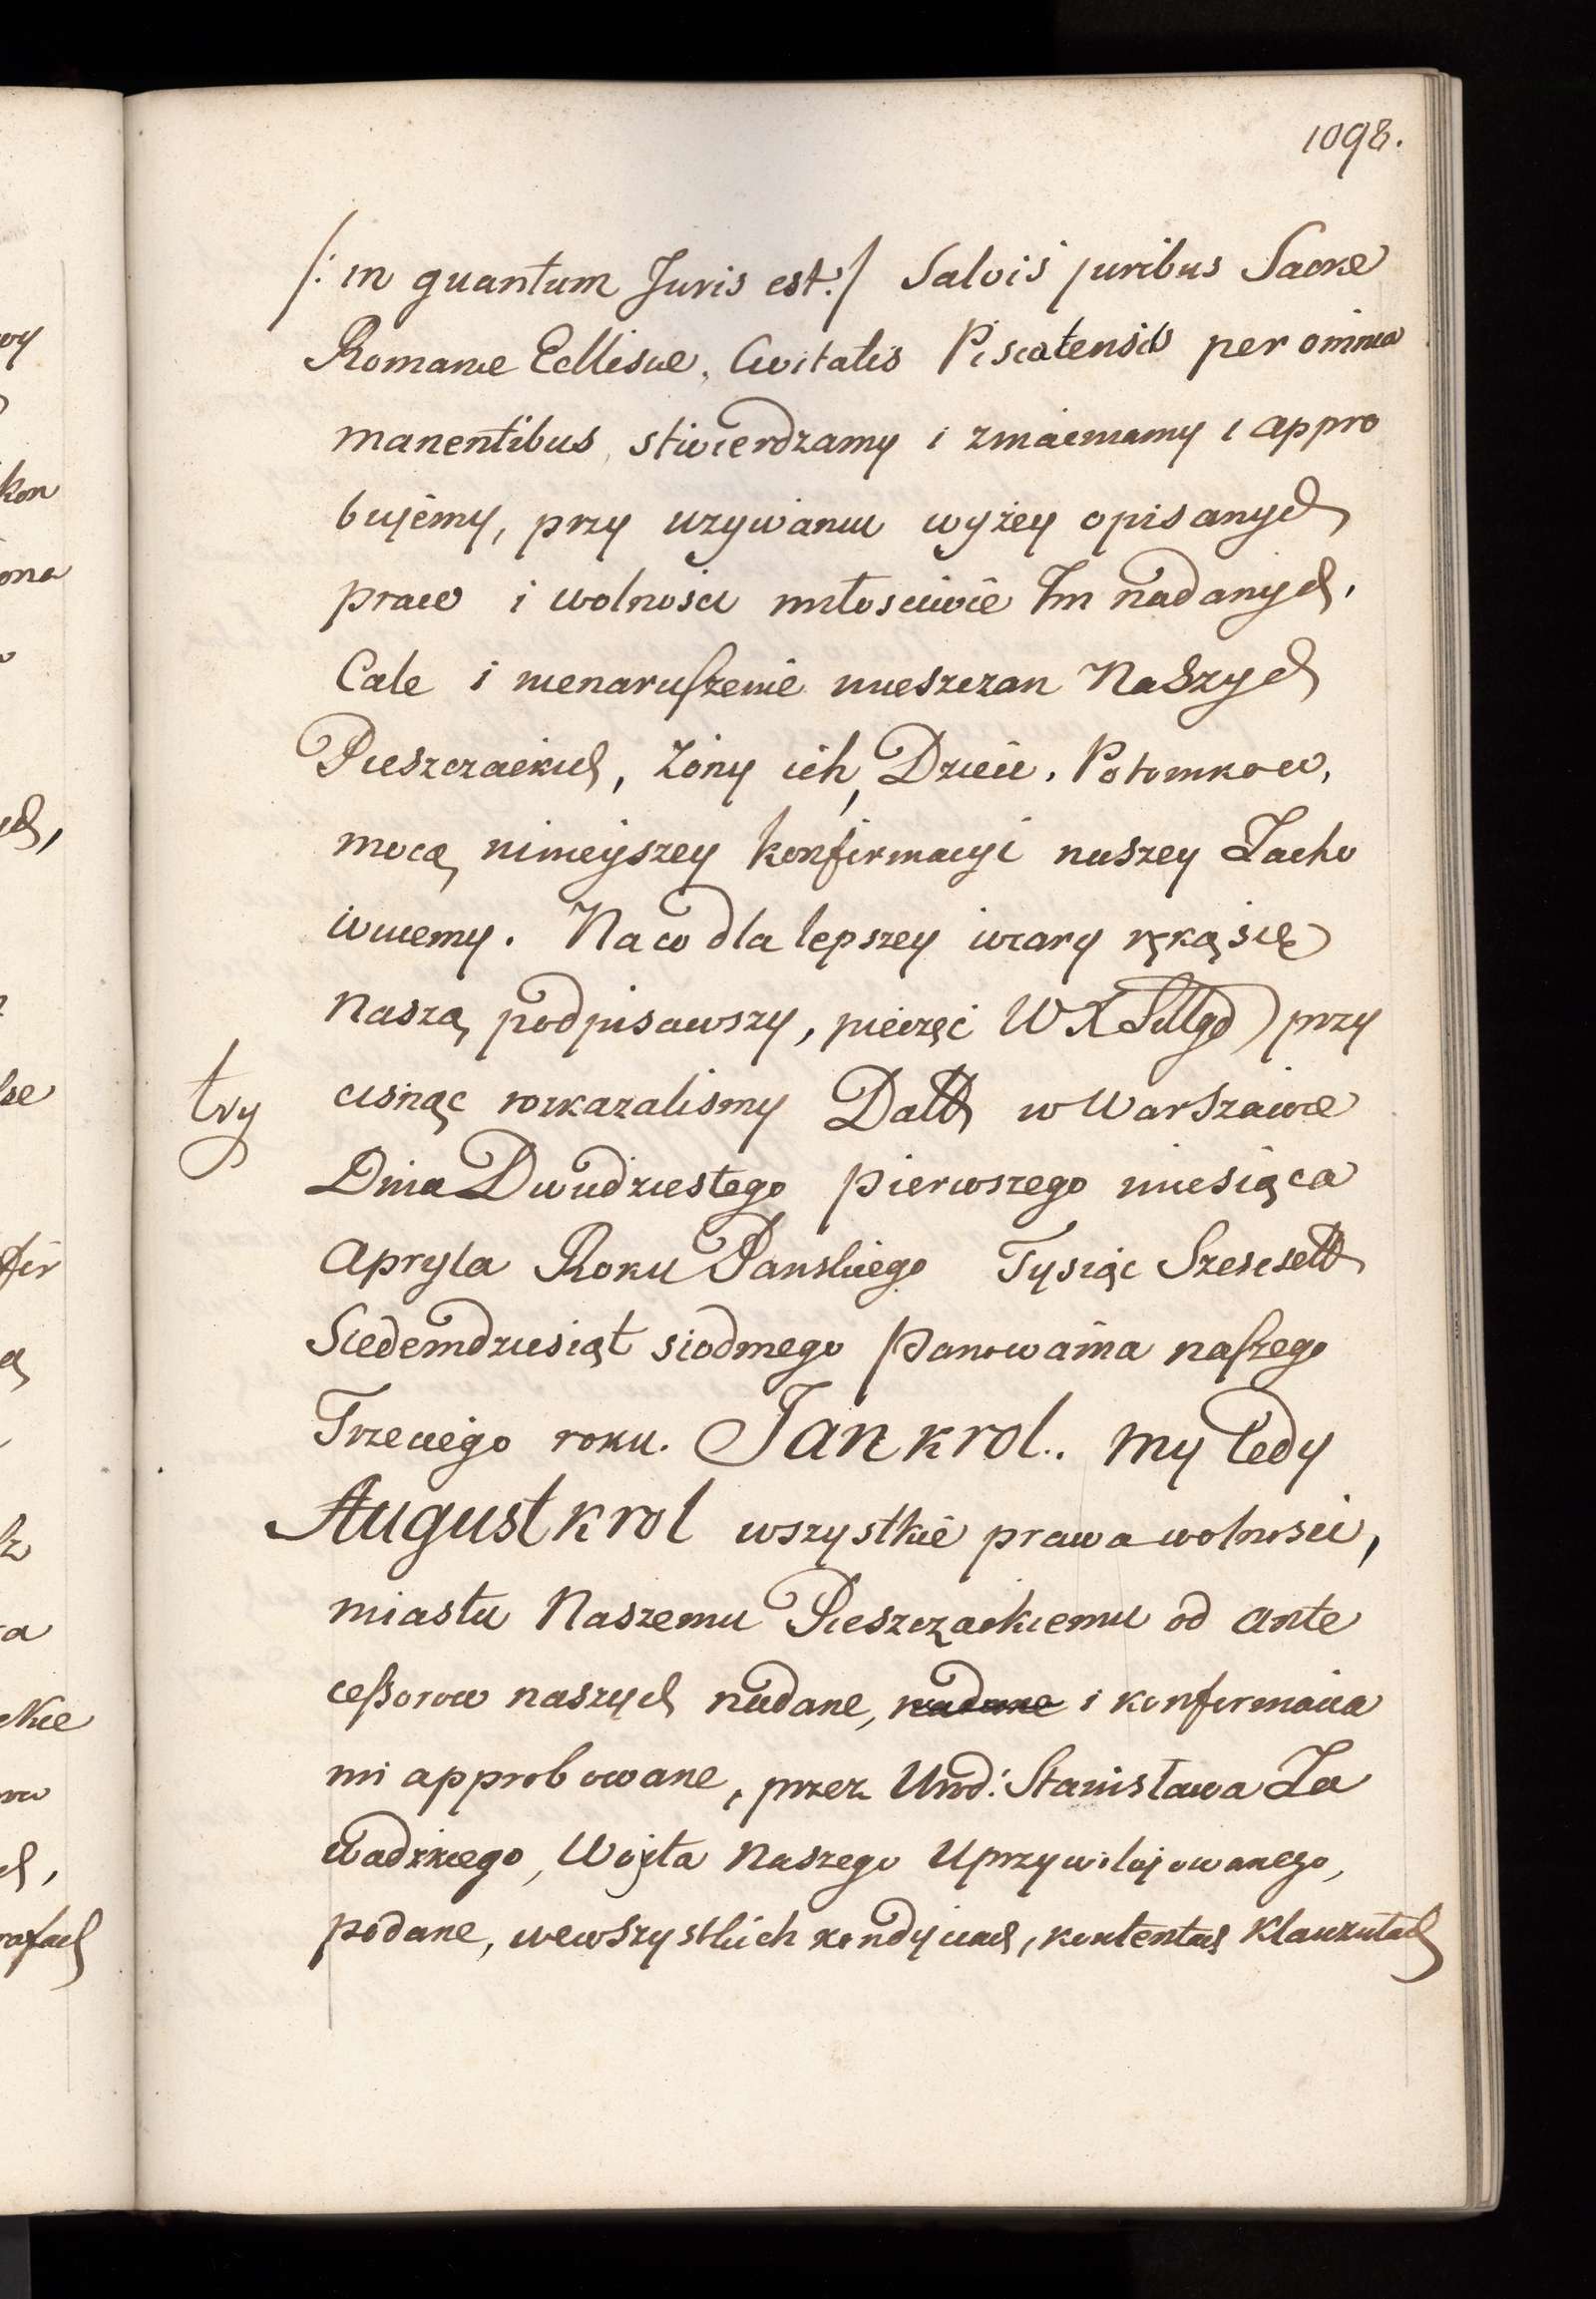 1098.
/: in quantum Juris est :/ Salvis juribus Sacræ
Romanæ Ecllisiæ, Civitatis Piscatensis per omnia
manentibus, stwierdzamy i zmacniamy i appro
bujemy, przy uzywaniu wyżey opisanych
praw i wolnosci miłosciwie Im nadanych,
Cale i nienaruszenie mieszczan Naszych
Piesczackich, Żony ich, Dzieci, Potomkow,
mocą ninieyszey konfirmacyi naszey Zacho
wuiemy. Na co dla lepszey wiary ręką się
naszą podpisawszy, pieczęć W X Littgo przy
try
cisnąc rozkazalismy Datt w Warszawie
Dnia Dwudziestego pierwszego miesiąca
Apryla Roku Panskiego Tysiąc Szescsett
Siedemdziesiąt siodmego Panowania naszego
Trzeciego roku. Jan krol.. My tedy
August krol wszystkie prawa wolnosci,
miastu Naszemu Pieszczackiemu od ante
cessorow naszych nadane, nadane i konfirmacia
mi approbowane, przez Urod: Stanisława Za
wadzkiego, Woyta Naszego Uprzywilejowanego,
podane, wewszystkich kondyciach, kontentach Klauzułach